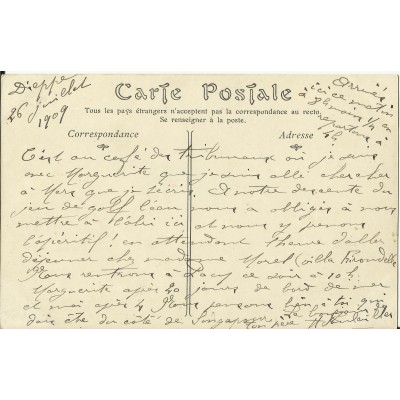 Dieppe
26 juillet
1909
Carte Postale
Tous les pays étrangers n'acceptent pas la correspondance au recto.
Se renseigner à la poste.
Correspondance
Adresse
Arrivés
ici ce matin
à
repartons à
C'est au café des Tribunaux où je suis
avec Marguerite que je suis allé chercher
à que je t'écris. A notre descente du
jeu de golf l'eau nous a obligés à nous
mettre à l'abri ici et nous y prenons
l'apéritif en attendant l'heure d'aller
déjeuner chez madame Morel (villa Hirondelle)
Nous rentrons à ce soir à 10 h.
Marguerite après 20 jours de bord de mer
et moi après 4 Nous pensons bien à toi qui
dois être du côté de Singapour
ton père